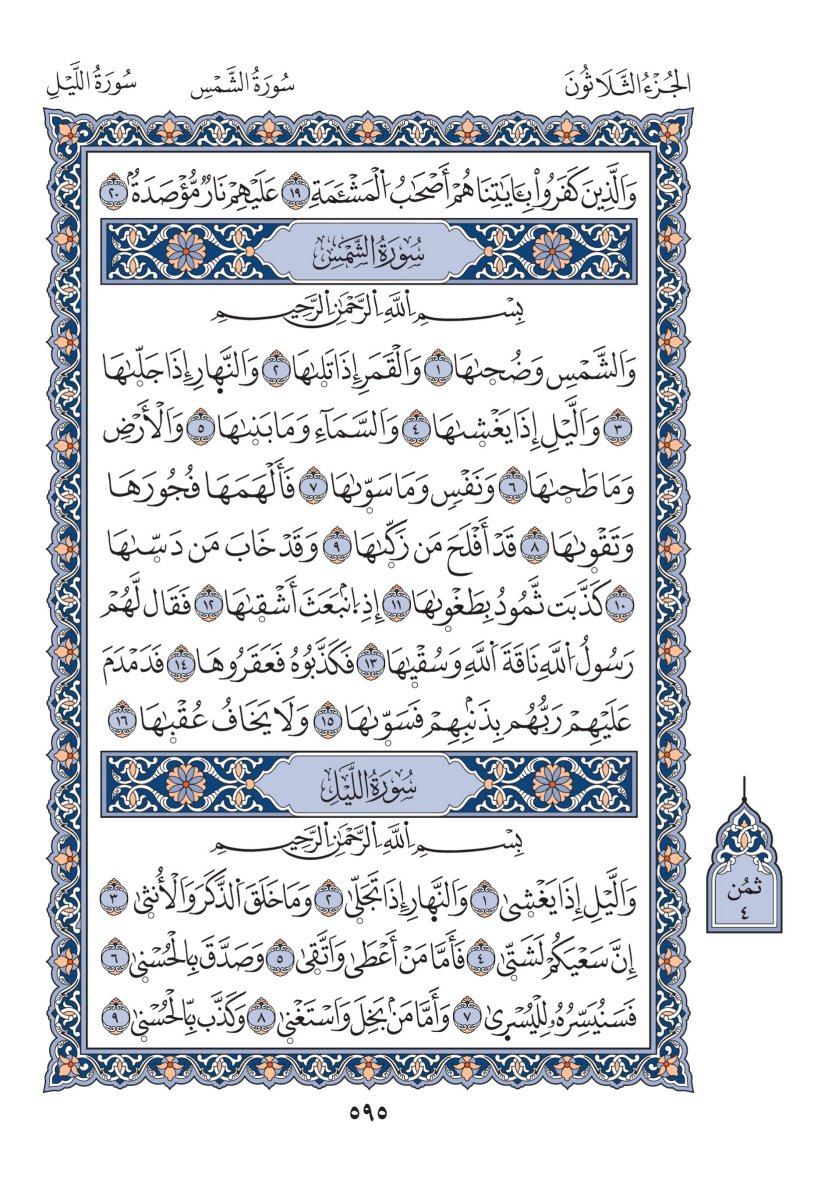 الجُزْءُ الثَّلَاثُونَ سُورَةُ الشَّمْسِ سُورَةُ اللَّيْلِ
وَالَّذِينَ كَفَرُواْ بِـَٔايَٰتِنَا هُمْ أَصْحَٰبُ الْمَشْـَٔمَةِ ١٩ عَلَيْهِمْ نَارٌ مُّؤْصَدَةٌ ٢٠
سُورَةُ الشَّمْسِ
بِسْمِ اللَّهِ الرَّحْمَٰنِ الرَّحِيمِ
وَالشَّمْسِ وَضُحىٰهَا ١ وَالْقَمَرِ إِذَا تَلىٰهَا ٢ وَالنَّهارِ إِذَا جَلّىٰهَا
٣ وَالَّيْلِ إِذَا يَغْشىٰهَا ٤ وَالسَّمَآءِ وَمَا بَنىٰهَا ٥ وَالْأَرْضِ
وَمَا طَحىٰهَا ٦ وَنَفْسٍ وَمَا سَوّىٰهَا ٧ فَأَلْهَمَهَا فُجُورَهَا
وَتَقْوىٰهَا ٨ قَدْ أَفْلَحَ مَن زَكّىٰهَا ٩ وَقَدْ خَابَ مَن دَسّىٰهَا
١٠ كَذَّبَت ثَّمُودُ بِطَغْوىٰهَا ١١ إِذِ انۢبَعَثَ أَشْقىٰهَا ١٢ فَقَال لَّهُمْ
رَسُولُ اللَّهِ نَاقَةَ اللَّهِ وَسُقْيٰهَا ١٣ فَكَذَّبُوهُ فَعَقَرُوهَا ١٤ فَدَمْدَمَ
عَلَيْهِمْ رَبُّهُم بِذَنۢبِهِمْ فَسَوّىٰهَا ١٥ وَلَا يَخَافُ عُقْبٰهَا ١٦
سُورَةُ اللَّيْلِ
بِسْمِ اللَّهِ الرَّحْمَٰنِ الرَّحِيمِ
وَالَّيْلِ إِذَا يَغْشىٰ ١ وَالنَّهارِ إِذَا تَجَلّىٰ ٢ وَمَا خَلَقَ الذَّكَرَ وَالْأُنثىٰ ٣
إِنَّ سَعْيَكُمْ لَشَتّىٰ ٤ فَأَمَّا مَنْ أَعْطىٰ وَاتَّقىٰ ٥ وَصَدَّقَ بِالْحُسْنىٰ ٦
فَسَنُيَسِّرُهُۥ لِلْيُسْرىٰ ٧ وَأَمَّا مَنۢ بَخِلَ وَاسْتَغْنىٰ ٨ وَكَذَّب بِّالْحُسْنىٰ ٩
ثمُن
٤
٥٩٥